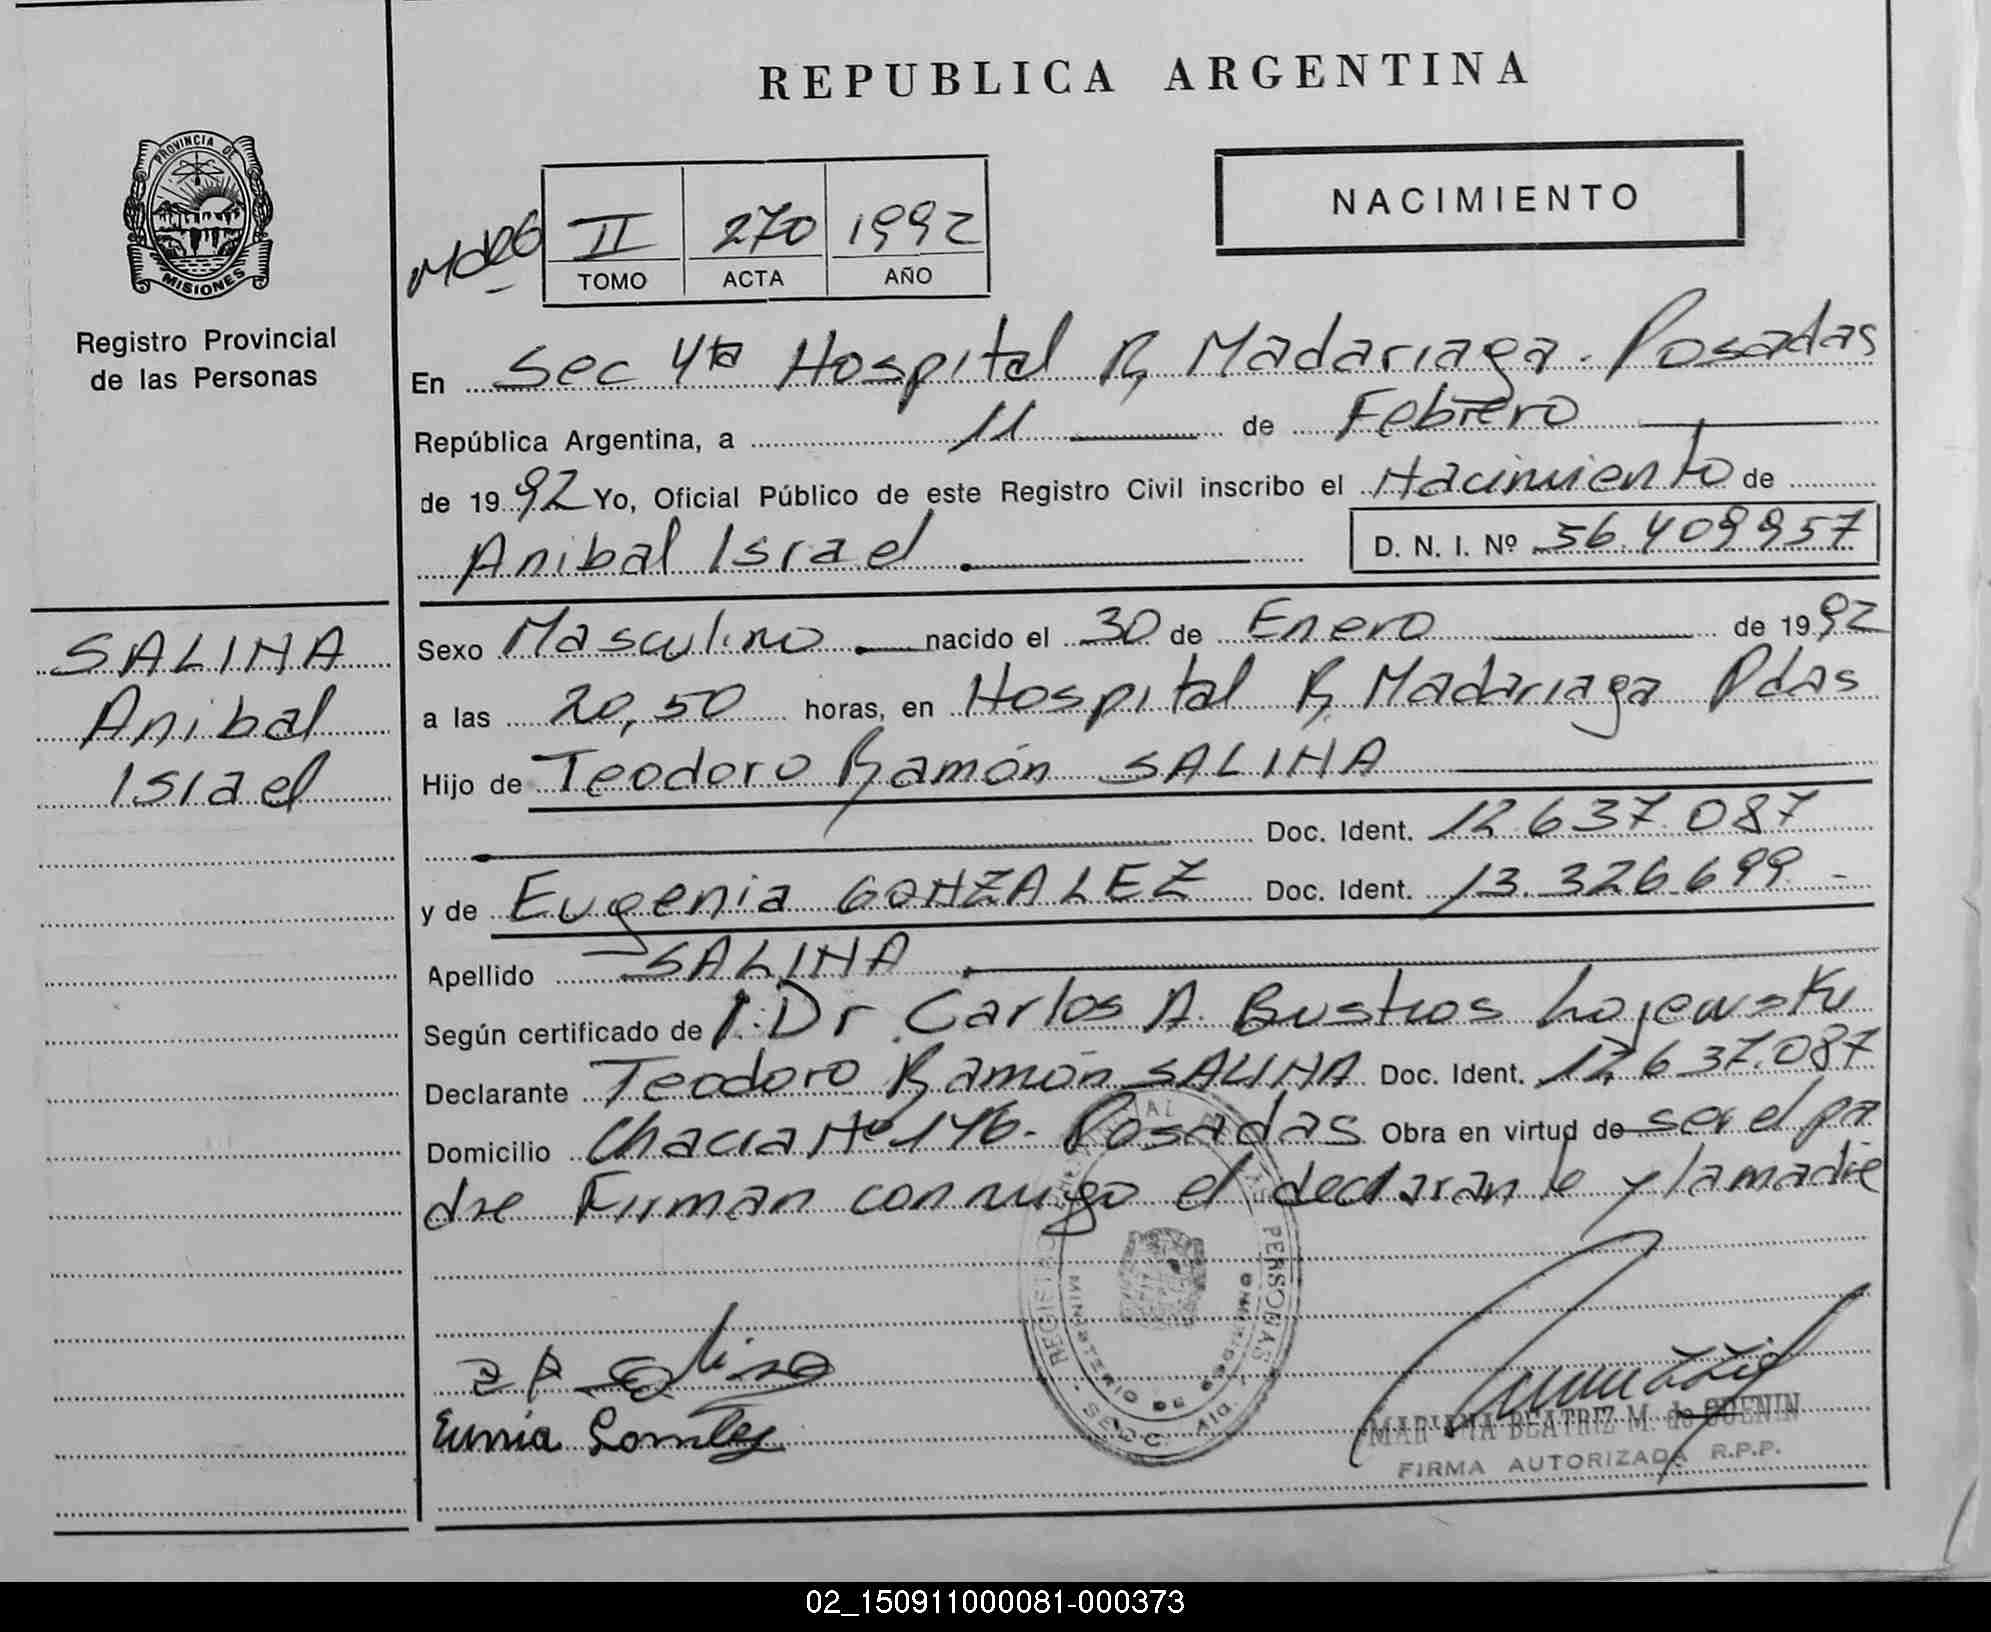 REPUBLICA ARGENTINA
PROVINCIA DE
MISIONES
Registro Provincial
de las Personas
NACIMIENTO
II 270 1992
TOMO ACTA AÑO
En Sec 4ta Hospital R, Madariaga. Posadas
República Argentina, a 11 de Febrero
de 1992 Yo, Oficial Público de este Registro Civil inscribo el Nacimiento de
Anibal Israel D. N. I. Nº 36.409957
SALINA
Anibal
Israel
Sexo Masculino nacido el 30 de Enero de 1992
a las 20,50 horas, en Hospital R, Madariaga Pdas
Hijo de Teodoro Ramón SALINA
Doc. Ident. 12.637.087
y de Eugenia GONZALEZ Doc. Ident. 13.326.699
Apellido SALINA
Según certificado de Dr Carlos A. Bustos
Declarante Teodoro Ramón SALINA Doc. Ident. 12.637.087
Domicilio Chacra Nº 146. Posadas Obra en virtud de ser el pa
dre Firman conmigo el declarante y la madre
REGISTRO PERSONAS
MINISTERIO DE GOBIERNO
MARIANA BEATRIZ M. de GUENIN
FIRMA AUTORIZADA R.P.P.
02_150911000081-000373